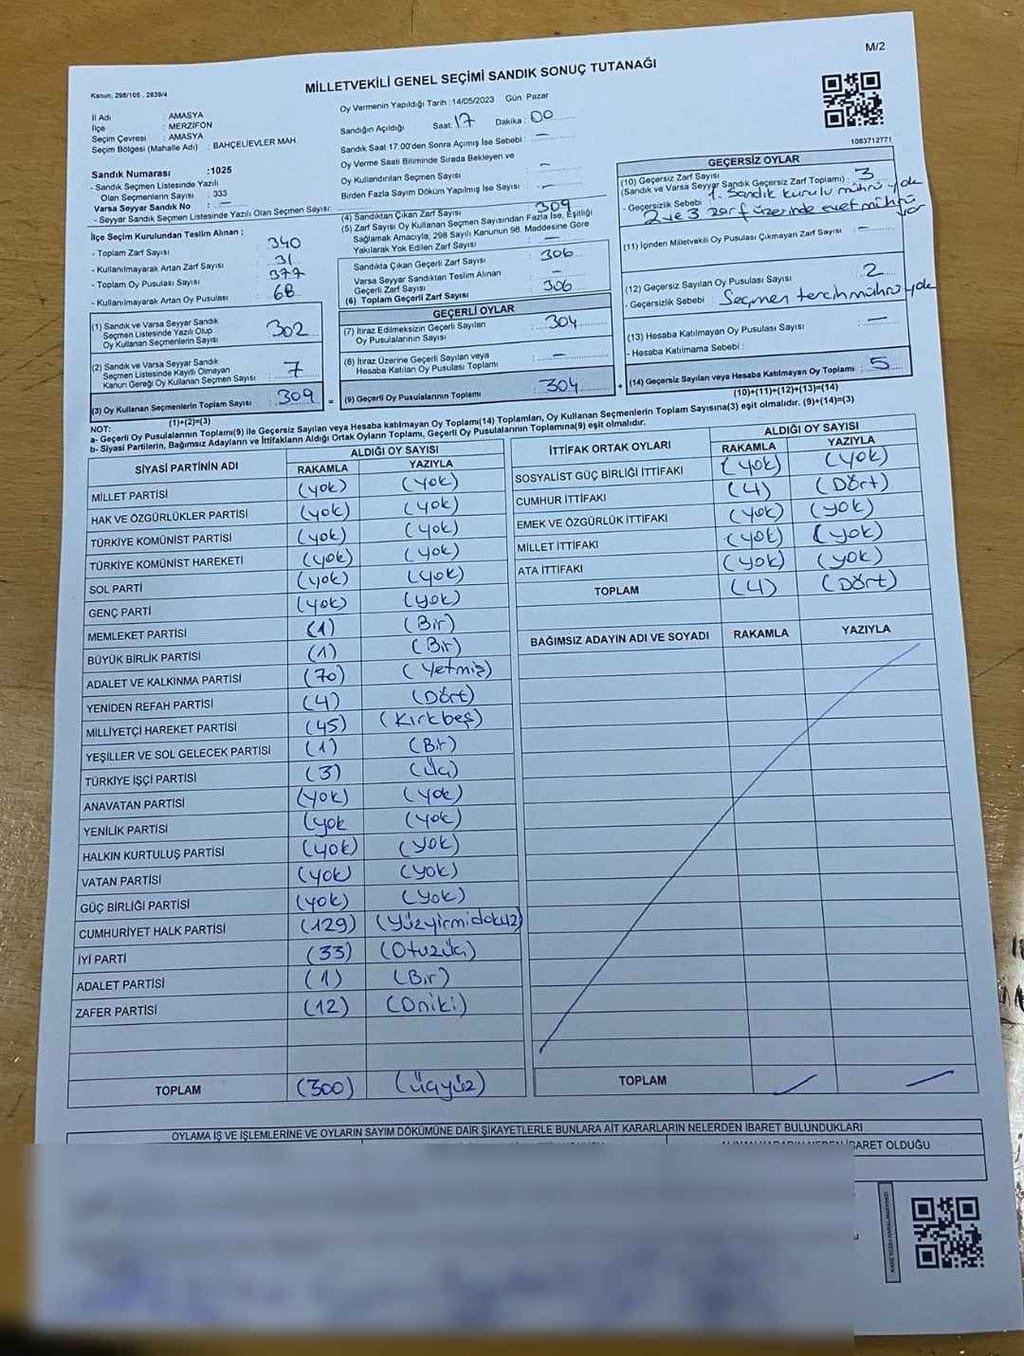 M/2
MİLLETVEKİLİ GENEL SEÇİMİ SANDIK SONUÇ TUTANAĞI
Kanun: 298/105 , 2839/4
İl Adı : AMASYA
İlçe : MERZİFON
Seçim Çevresi : AMASYA
Seçim Bölgesi (Mahalle Adı) : BAHÇELİEVLER MAH.
Sandık Numarası :1025
- Sandık Seçmen Listesinde Yazılı
Olan Seçmenlerin Sayısı : 333
Varsa Seyyar Sandık No : —
- Seyyar Sandık Seçmen Listesinde Yazılı Olan Seçmen Sayısı:
İlçe Seçim Kurulundan Teslim Alınan ;
- Toplam Zarf Sayısı : 340
- Kullanılmayarak Artan Zarf Sayısı : 31
- Toplam Oy Pusulası Sayısı : 377
- Kullanılmayarak Artan Oy Pusulası : 68
(1) Sandık ve Varsa Seyyar Sandık
Seçmen Listesinde Yazılı Olup
Oy Kullanan Seçmenlerin Sayısı : 302
(2) Sandık ve Varsa Seyyar Sandık
Seçmen Listesinde Kayıtlı Olmayan
Kanun Gereği Oy Kullanan Seçmen Sayısı : 7
(3) Oy Kullanan Seçmenlerin Toplam Sayısı : 309
(1)+(2)=(3)
Oy Vermenin Yapıldığı Tarih :14/05/2023 Gün: Pazar
Sandığın Açıldığı Saat: 17 Dakika : 00
Sandık Saat 17.00'den Sonra Açılmış İse Sebebi : —
Oy Verme Saati Bitiminde Sırada Bekleyen ve
Oy Kullandırılan Seçmen Sayısı : —
Birden Fazla Sayım Döküm Yapılmış İse Sayısı : —
(4) Sandıktan Çıkan Zarf Sayısı : 309
(5) Zarf Sayısı Oy Kullanan Seçmen Sayısından Fazla İse, Eşitliği
Sağlamak Amacıyla; 298 Sayılı Kanunun 98. Maddesine Göre
Yakılarak Yok Edilen Zarf Sayısı : —
Sandıkta Çıkan Geçerli Zarf Sayısı : 306
Varsa Seyyar Sandıktan Teslim Alınan
Geçerli Zarf Sayısı : —
(6) Toplam Geçerli Zarf Sayısı : 306
GEÇERLİ OYLAR
(7) İtiraz Edilmeksizin Geçerli Sayılan
Oy Pusulalarının Sayısı : 304
(8) İtiraz Üzerine Geçerli Sayılan veya
Hesaba Katılan Oy Pusulası Toplamı : —
(9) Geçerli Oy Pusulalarının Toplamı : 304
1083712771
GEÇERSİZ OYLAR
(10) Geçersiz Zarf Sayısı : 3
(Sandık ve Varsa Seyyar Sandık Geçersiz Zarf Toplamı)
- Geçersizlik Sebebi : 1. Sandık kurulu mührü yok
2 ve 3 zarf üzerinde evet mührü
var
(11) İçinden Milletvekili Oy Pusulası Çıkmayan Zarf Sayısı : —
(12) Geçersiz Sayılan Oy Pusulası Sayısı : 2
- Geçersizlik Sebebi : Seçmen tercih mührü yok
(13) Hesaba Katılmayan Oy Pusulası Sayısı : —
- Hesaba Katılmama Sebebi :
(14) Geçersiz Sayılan veya Hesaba Katılmayan Oy Toplamı : 5
(10)+(11)+(12)+(13)=(14)
NOT:
a- Geçerli Oy Pusulalarının Toplamı(9) ile Geçersiz Sayılan veya Hesaba katılmayan Oy Toplamı(14) Toplamları, Oy Kullanan Seçmenlerin Toplam Sayısına(3) eşit olmalıdır. (9)+(14)=(3)
b- Siyasi Partilerin, Bağımsız Adayların ve İttifakların Aldığı Ortak Oyların Toplamı, Geçerli Oy Pusulalarının Toplamına(9) eşit olmalıdır.
SİYASİ PARTİNİN ADI ALDIĞI OY SAYISI
RAKAMLA YAZIYLA
MİLLET PARTİSİ (yok) (yok)
HAK VE ÖZGÜRLÜKLER PARTİSİ (yok) (yok)
TÜRKİYE KOMÜNİST PARTİSİ (yok) (yok)
TÜRKİYE KOMÜNİST HAREKETİ (yok) (yok)
SOL PARTİ (yok) (yok)
GENÇ PARTİ (yok) (yok)
MEMLEKET PARTİSİ (1) (Bir)
BÜYÜK BİRLİK PARTİSİ (1) (Bir)
ADALET VE KALKINMA PARTİSİ (70) (Yetmiş)
YENİDEN REFAH PARTİSİ (4) (Dört)
MİLLİYETÇİ HAREKET PARTİSİ (45) (Kırkbeş)
YEŞİLLER VE SOL GELECEK PARTİSİ (1) (Bir)
TÜRKİYE İŞÇİ PARTİSİ (3) (Üç)
ANAVATAN PARTİSİ (yok) (yok)
YENİLİK PARTİSİ (yok (yok)
HALKIN KURTULUŞ PARTİSİ (yok) (yok)
VATAN PARTİSİ (yok) (yok)
GÜÇ BİRLİĞİ PARTİSİ (yok) (yok)
CUMHURİYET HALK PARTİSİ (129) (Yüzyirmidokuz)
İYİ PARTİ (33) (Otuzüç)
ADALET PARTİSİ (1) (Bir)
ZAFER PARTİSİ (12) (Oniki)
TOPLAM (300) (Üçyüz)
İTTİFAK ORTAK OYLARI ALDIĞI OY SAYISI
RAKAMLA YAZIYLA
SOSYALİST GÜÇ BİRLİĞİ İTTİFAKI (yok) (yok)
CUMHUR İTTİFAKI (4) (Dört)
EMEK VE ÖZGÜRLÜK İTTİFAKI (yok) (yok)
MİLLET İTTİFAKI (yok) (yok)
ATA İTTİFAKI (yok) (yok)
TOPLAM (4) (Dört)
BAĞIMSIZ ADAYIN ADI VE SOYADI RAKAMLA YAZIYLA
TOPLAM — —
OYLAMA İŞ VE İŞLEMLERİNE VE OYLARIN SAYIM DÖKÜMÜNE DAİR ŞİKAYETLERLE BUNLARA AİT KARARLARIN NELERDEN İBARET BULUNDUKLARI
İBARET OLDUĞU